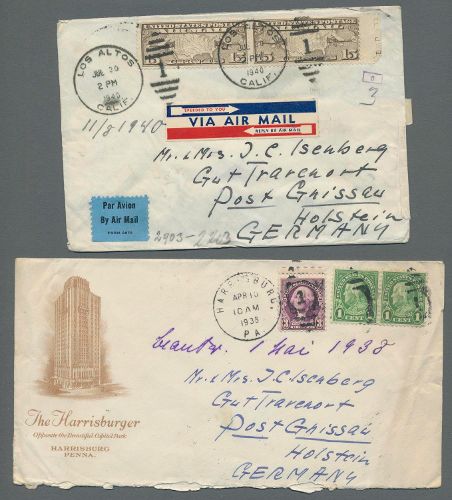 UNITED STATES POSTAGE
UNITED STATES POSTAGE
15
15
LOS ALTOS
JUL 30
2 PM
1940
CALIF.
1
LOS ALTOS
JUL 30
2 PM
1940
CALIF.
1
3
11/8 1940
SPEEDED TO YOU
VIA AIR MAIL
REPLY BY AIR MAIL
Mr. & Mrs. J. C. Isenberg
Gut Travenort
Post Gnissau
Holstein
GERMANY
Par Avion
By Air Mail
2903-2203
HARRISBURG,
APR 10
10 AM
1938
PA.
3
3
1 CENT 1
1 CENT 1
1 Mai 1938
Mr. & Mrs. J. C. Isenberg
Gut Travenort
Post Gnissau
Holstein
GERMANY
The Harrisburger
Opposite the Beautiful Capitol Park
HARRISBURG
PENNA.